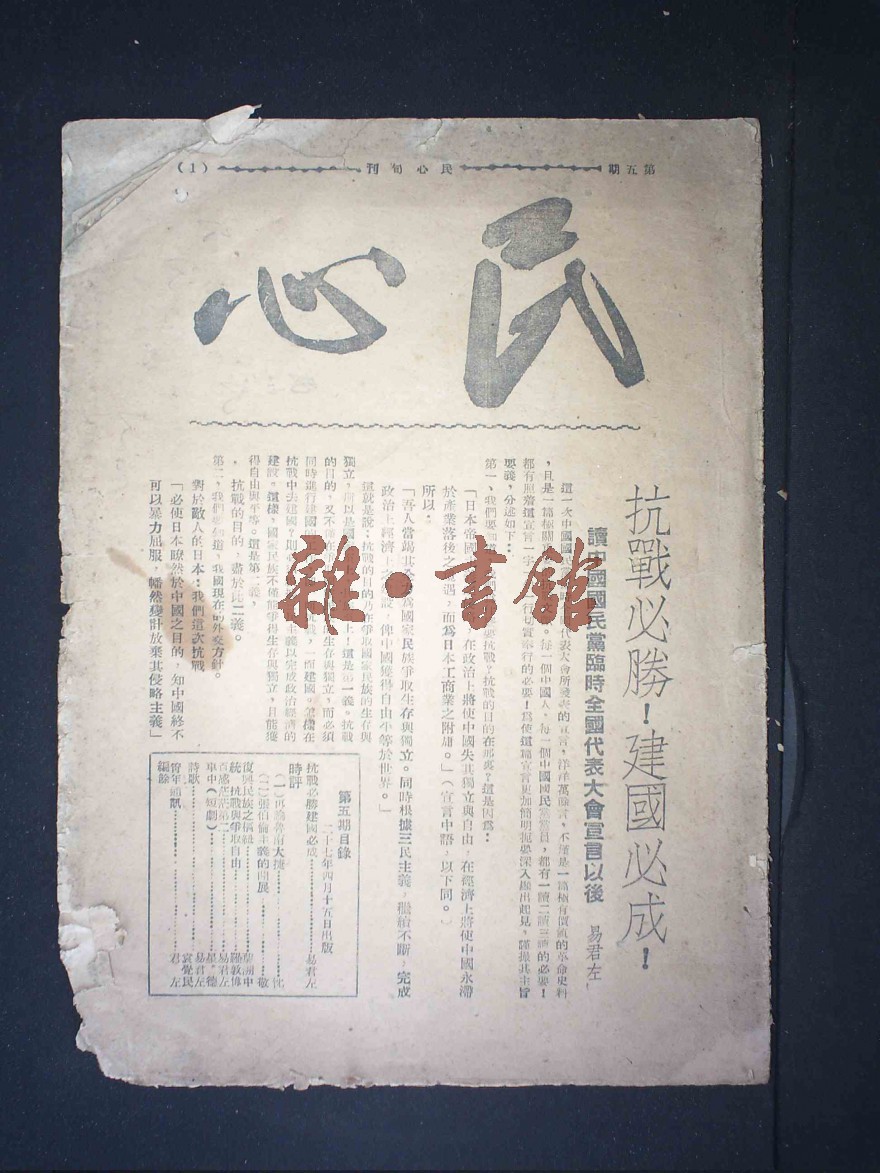 第五期 民心旬刊 (1)
民心
抗戰必勝！建國必成！
讀中國國民黨臨時全國代表大會宣言以後
易君左
這一次中國國 代表大會所發表的宣言，洋洋萬餘言，不僅是一篇極有價值的革命史料
，且是一篇極關 每一個中國人，每一個中國國民黨黨員，都有一讀二讀三讀的必要！
都有照落這宣言一字 行切實奉行的必要！為使這篇宣言更加簡明扼要深入顯出起見，謹撮其主旨
要義，分述如下：
第一、我們要知 要抗戰？抗戰的目的在那裏？這是因為：
「日本帝國 ，在政治上將使中國失其獨立與自由，在經濟上將使中國永滯
於產業落後之 遇，而為日本工商業之附庸。」（宣言中語，以下同。）
所以：
「吾人當竭其 為國家民族爭取生存與獨立。同時根據三民主義，繼續不斷，完成
政治上經濟上 設，俾中國獲得自由平等於世界。」
這就是說：抗戰的目的乃在爭取國家民族的生存與
獨立，所以是國 上，這是第一義。抗戰
的目的，又不僅在 生存與獨立，而必須
同時進行建國的 抗戰，一面建國。怎樣在
抗戰中去建國？則 主義以完成政治經濟的
建設。這樣，國家民族不僅能爭得生存與獨立，且能獲
得自由與平等。這是第二義。
，抗戰的目的，盡於此二義。
第二，我們要知道，我國現在的外交方針。
對於敵人的日本：我們這次抗戰
「必使日本瞭然於中國之目的，知中國終不
可以暴力屈服，幡然變計放棄其侵略主義」
第五期目錄
二十七年四月十五日出版
抗戰必勝建國必成 易君左
時評
（一）再論魯南大捷
（二）張伯倫主義的開展 敬
復興民族之樞紐
統一抗戰與爭取自由
百感茫茫第二 易君左
車中（短劇）
詩歌 易君左
青年通訊 袁覺民
編餘 君左
雜·書館